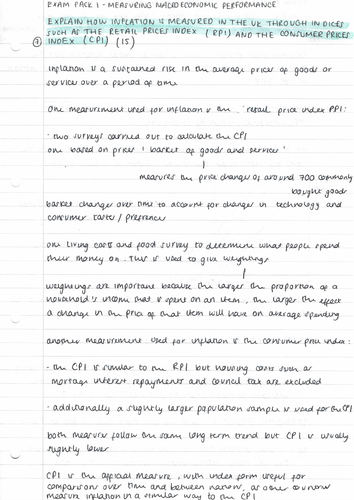 EXAM PACK 1 - MEASURING MACROECONOMIC PERFORMANCE
EXPLAIN HOW INFLATION IS MEASURED IN THE UK THROUGH INDICES
SUCH AS THE RETAIL PRICES INDEX (RPI) AND THE CONSUMER PRICES
INDEX (CPI) (15)
inflation is a sustained rise in the average prices of goods or
services over a period of time
one measurement used for inflation is the retail price index RPI:
- two surveys carried out to calculate the CPI
one based on prices 'basket of goods and services'
measures the price changes of around 700 commonly
bought goods
basket changes over time to account for changes in technology and
consumer tastes / preferences
one living costs and food survey to determine what people spend
their money on. This is used to give weightings
weightings are important because the larger the proportion of a
household's income that is spent on an item, the larger the effect
a change in the price of that item will have on average spending
another measurement used for inflation is the consumer price index:
- the CPI is similar to the RPI but housing costs such as
mortgage interest repayments and council tax are excluded
- additionally a slightly larger population sample is used for the CPI
both measures follow the same long term trend but CPI is usually
slightly lower
CPI is the official measure, with index form useful for
comparisons over time and between nations, as other countries
measure inflation in a similar way to the CPI